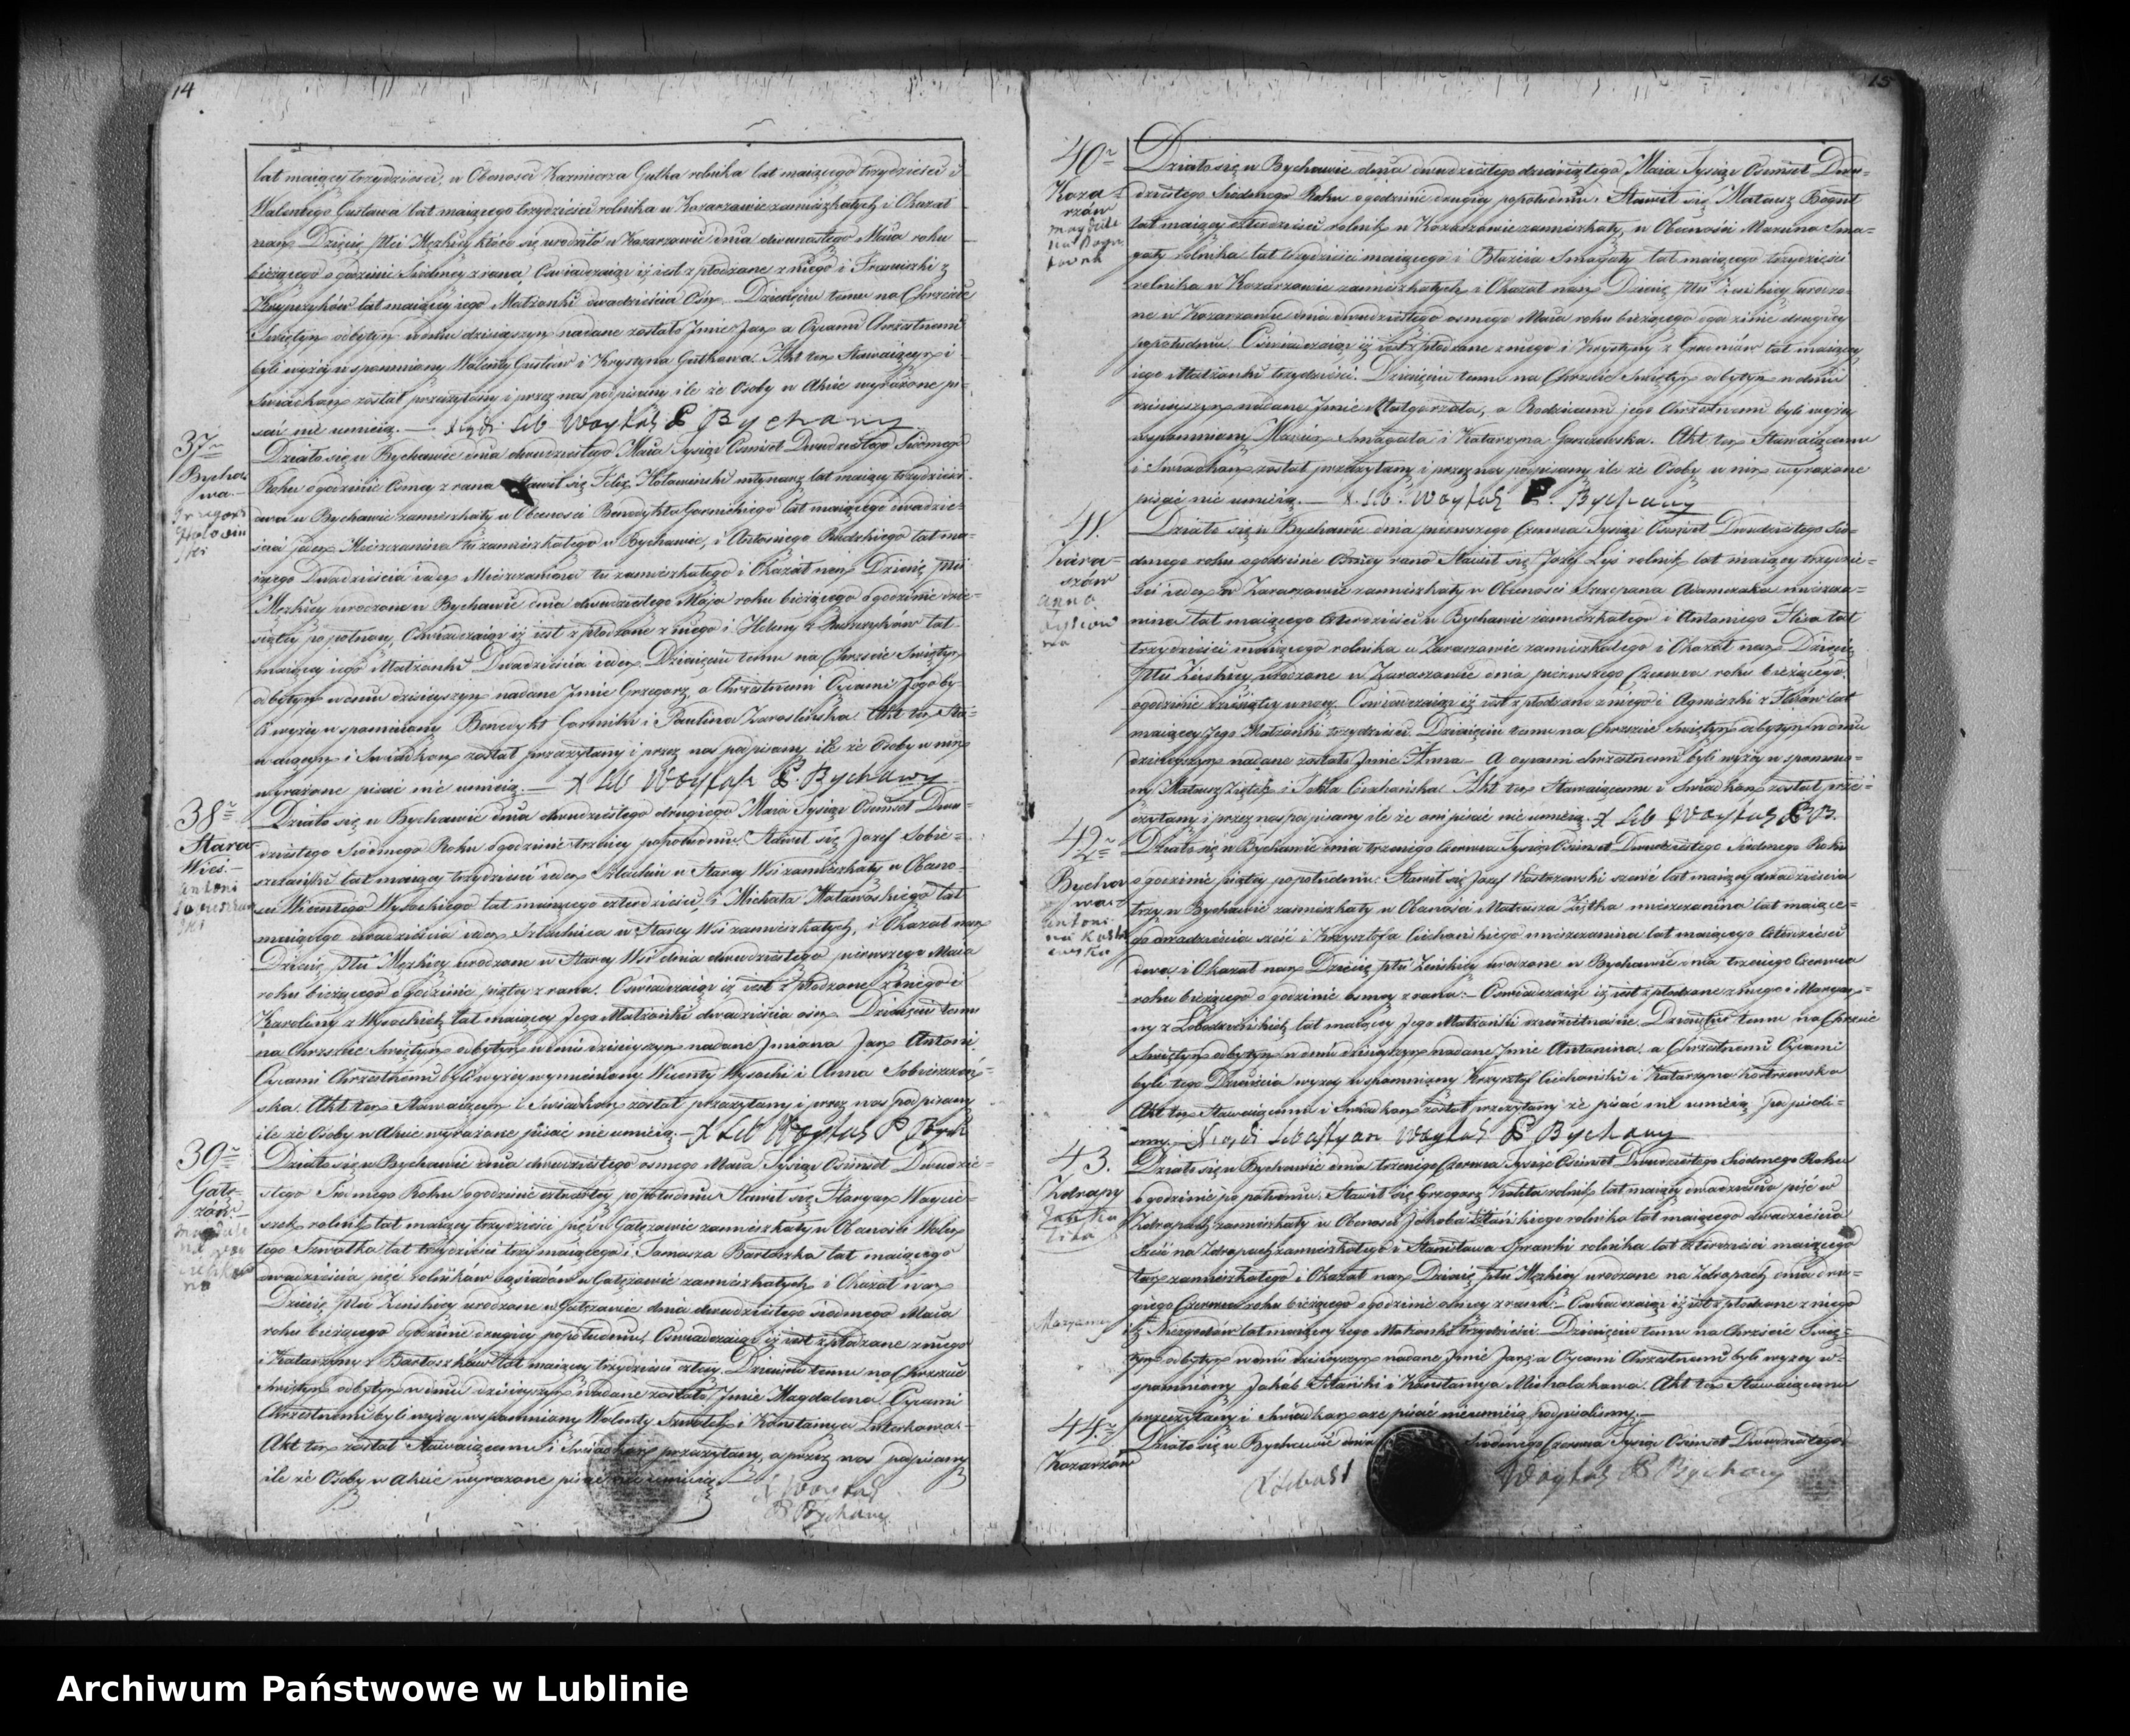 14
lat maiący trzydzieści, w Obecności Kazimierza Gutka rolnika lat maiącego trzydzieści i
Walentego Gustawa lat maiącego trzydzieści rolnika w Kozarzowie zamieszkałych i Okazał
nam Dziecię Płci Męzkiey które się urodziło w Kozarzowie dnia dwunastego Maia roku
bieżącego o godzinie Siódmey z rana Oświadczaiąc iż iest z płodzone z niego i Franciszki z
lat maiącey iego Małżonki dwadzieścia Ośm. Dziecięciu temu na Chrzcie
Świętym odbytym w dniu dzisieyszym nadane zostało Jmie Jan a Oycami Chrzestnemi
byli wyżey wspomniany Walenty Gustaw i Krystyna Gutkowa. Akt ten Stawaiącym i
Świadkom został przeczytany i przez nas podpisany ile że Osoby w Akcie wyrażone pi-
sać nie umieią. — Seb Woytuś P Bychawy
37
Bycha
wa.
Grzegorz
Hołowiń
ski
Działo się w Bychawie dnia dwudziestego Maia Tysiąc Ośmset Dwudziestego Siódmego
Roku o godzinie Osmey z rana Stawił się Felix Hołowiński młynarz lat maiący trzydzieści
dwa w Bychawie zamieszkały w Obecności Benedykta Garnickiego lat maiącego dwadzie-
ścia jeden Mieszczanina tu zamieszkałego w Bychawie, i Antoniego Rudzkiego lat ma-
iącego Dwadzieścia ieden Mieszczanina tu zamieszkałego i Okazał nam Dziecię Płci
Męzkiey urodzone w Bychawie dnia dwudziestego Maja roku bieżącego o godzinie dzie-
siątey po północy, Oświadczaiąc iż iest z płodzone z niego i Heleny z lat
maiącey iego Małżonki Dwadzieścia ieden. Dziecięciu temu na Chrzcie Świętym
odbytym w dniu dzisieyszym nadane Jmie Grzegorz, a Chrzestnemi Oycami Jego by-
li wyżey wspomniany Benedykt Garnicki i Paulina Zaroslińska. Akt ten Sta-
waiącym i Świadkom został przeczytany i przez nas podpisany ile że Osoby w nim
wyrażone pisać nie umieią. — X Seb Woytuś P. Bychawy
38
Stara
Wieś.
Antoni
Działo się w Bychawie dnia dwudziestego drugiego Maia Tysiąc Ośmset Dwu-
dziestego Siódmego Roku o godzinie trzeciey popołudniu. Stawił się Jozef Sobie-
szczański lat maiący trzydzieści ieden Szlachcic w Starey Wsi zamieszkały w Obecno-
ści Wicentego Wysockiego lat maiącego czterdzieści, i Michała lat
maiącego dwadzieścia ieden Szlachcica w Starey Wsi zamieszkałych, i Okazał nam
Dziecię płci Męzkiey urodzone w Starey Wsi dnia dwudziestego pierwszego Maia
roku bieżącego o godzinie piątey z rana. Oświadczaiąc iż iest z płodzone z niego i
Karoliny z Wysockich lat maiącey Jego Małżonki dwadzieścia ośm. Dziecięciu temu
na Chrzcie Świętym odbytym w dniu dzisieyszym nadane Jmiona Jan Antoni.
Oycami Chrzestnemi byli wyżey wymieniony Wicenty Wysocki i Anna Sobieszczań-
ska. Akt ten Stawaiącym i Świadkom został przeczytany i przez nas podpisany
ile że Osoby w Akcie wyrażone pisać nie umieią. X Seb Woytuś P Bych
39
Gałę-
zów
Działo się w Bychawie dnia dwudziestego osmego Maia Tysiąc Ośmset Dwudzie-
stego Siódmego Roku o godzinie czwartey popołudniu Stawił się Maryan Woycie-
szek rolnik lat maiący trzydzieści pięć w Gałęzowie zamieszkały w Obecności Walen-
tego Szwałka lat trzydzieści trzy maiącego i Tomasza Bartoszka lat maiącego
dwadzieścia pięć rolników sąsiadów w Gałęzowie zamieszkałych i Okazał nam
Dziecię płci Żeńskiey urodzone w Gałęzowie dnia dwudziestego siódmego Maia
roku bieżącego o godzinie drugiey popołudniu. Oświadczaiąc iż iest z płodzone z niego
i Katarzyny z Bartoszków lat maiącey trzydzieści cztery. Dziecięciu temu na Chrzcie
Świętym odbytym w dniu dzisieyszym nadane zostało Jmie Magdalena. Oycami
Chrzestnemi byli wyżey wspomniany Walenty Szwałek i Konstancya
Akt ten został Stawaiącemu i Świadkom przeczytany, a przez nas podpisany
ile że Osoby w Akcie wyrażone pisać nie umieią.
X Woytuś
P Bychawy
15
40
Koza
rzów
Działo się w Bychawie dnia dwudziestego dziewiątego Maia Tysiąc Ośmset Dwu-
dziestego Siódmego Roku o godzinie drugiey popołudniu. Stawił się Mateusz Bogut
lat maiący czterdzieści rolnik w Kozarzowie zamieszkały, w Obecności Marcina Sma-
gały rolnika lat trzydzieści maiącego i Błażeia Smagały lat maiącego trzydzieści
rolnika w Kozarzowie zamieszkałych i Okazał nam Dziecię Płci Żeńskiey urodzo-
ne w Kozarzowie dnia dwudziestego osmego Maia roku bieżącego o godzinie drugiey
popołudniu. Oświadczaiąc iż iest z płodzone z niego i Krystyny z lat maiącey
iego Małżonki trzydzieści. Dziecięciu temu na Chrzcie Świętym odbytym w dniu
dzisieyszym nadane Jmie Małgorzata, a Rodzicami jego Chrzestnemi byli wyżey
wspomniany Marcin Smagała i Katarzyna Garczewska. Akt ten Stawaiącemu
i Świadkom został przeczytany i przez nas podpisany ile że Osoby w nim wyrażone
pisać nie umieią. — X. Seb. Woytuś P. Bychawy
41.
Zara-
szów
Anna
Działo się w Bychawie dnia pierwszego Czerwca Tysiąc Ośmset Dwudziestego Sió-
dmego roku o godzinie Osmey rano Stawił się Jozef Łys rolnik lat maiący trzydzie-
ści ieden w Zaraszowie zamieszkały w Obecności Szczepana Adamczaka mieszcza-
nina lat maiącego czterdzieści w Bychawie zamieszkałego i Antoniego Flisa lat
trzydzieści maiącego rolnika w Zaraszowie zamieszkałego i Okazał nam Dziecię
Płci Żeńskiey urodzone w Zaraszowie dnia pierwszego Czerwca roku bieżącego
o godzinie dziesiątey w nocy. Oświadczaiąc iż iest z płodzone z niego i Agnieszki z Flisów lat
maiącey Jego Małżonki trzydzieści. Dziecięciu temu na Chrzcie Świętym odbytym w dniu
dzisieyszym nadane zostało Jmie Anna. A Oycami chrzestnemi byli wyżey wspomnia-
ny Mateusz Ziętek i Tekla Cichańska. Akt ten Stawaiącemu i Świadkom został prze-
czytany i przez nas podpisany ile że oni pisać nie umieią. X Seb Woytuś P B.
42
Bycha
wa
Antoni
na Kostrz
ewska
Działo się w Bychawie dnia trzeciego Czerwca Tysiąc Ośmset Dwudziestego Siódmego Roku
o godzinie piątey popołudniu. Stawił się Jozef Kostrzewski szewc lat maiący dwadzieścia
trzy w Bychawie zamieszkały w Obecności Mateusza Ziętka mieszczanina lat maiące-
go dwadzieścia sześć i Krzysztofa Cichańskiego mieszczanina lat maiącego czterdzieści
dwa, i Okazał nam Dziecię płci Żeńskiey urodzone w Bychawie dnia trzeciego Czerwca
roku bieżącego o godzinie osmey z rana. — Oświadczaiąc iż iest z płodzone z niego i Maryan-
ny z lat maiącey Jego Małżonki dziewietnaście. Dziecięciu temu na Chrzcie
Świętym odbytym w dniu dzisieyszym nadane Jmie Antonina, a Chrzestnemi Oycami
byli tego Dziecięcia wyżey wspomniany Krzysztof Cichański i Katarzyna Kostrzewska
Akt ten Stawaiącemu i Świadkom został przeczytany że pisać nie umieią podpisali-
śmy. — Xiądz Sebastyan Woytuś P Bychawy
43.
Zdrapy
Działo się w Bychawie dnia trzeciego Czerwca Tysiąc Ośmset Dwudziestego Siódmego Roku
o godzinie po południu. Stawił się Grzegorz rolnik lat maiący dwadzieścia pięć w
Zdrapach zamieszkały w Obecności Jakóba rolnika lat maiącego dwadzieścia
sześć na Zdrapach zamieszkałego i Stanisława Sprawki rolnika lat czterdzieści maiącego
tam zamieszkałego i Okazał nam Dziecię płci Męzkiey urodzone na Zdrapach dnia dru-
giego Czerwca roku bieżącego o godzinie osmey z rana. — Oświadczaiąc iż iest z płodzone z niego
Maryanny
i z lat maiącey iego Małżonki trzydzieści. Dziecięciu temu na Chrzcie Świę-
tym odbytym w dniu dzisieyszym nadane Jmie Jan, a Oycami Chrzestnemi byli wyżey w-
spomniany Jakób i Konstancya Michalakowa. Akt ten Stawaiącemu
przeczytany i Świadkom a że pisać nie umieią podpisaliśmy. —
44.
Kozarzów
Działo się w Bychawie dnia Siódmego Czerwca Tysiąc Ośmset Dwudziestego
X Sebast Woytuś P Bychawy
Archiwum Państwowe w Lublinie